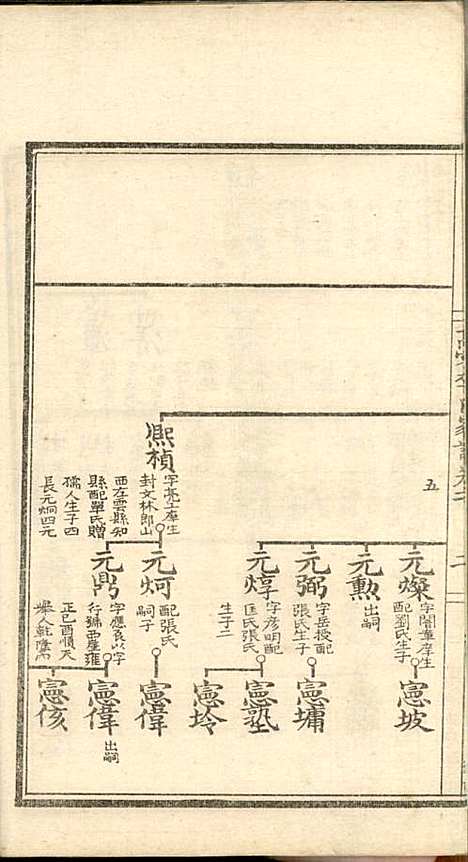 五
二
熙楨
字亮士庠生
封文林郎山
西左雲縣知
縣配單氏贈
孺人生子四
長元炯四元
元燦
字闇章庠生
配劉氏生子
元勲
出嗣
元弼
字岳授配
張氏生子
元焞
字彥明配
匡氏張氏
生子二
元炣
配張氏
嗣子
元鼎
字應良以字
行號西崖雍
正己酉順天
舉人乾隆
憲坡
憲墉
憲塾
憲坽
憲偉
憲偉
出嗣
憲侅